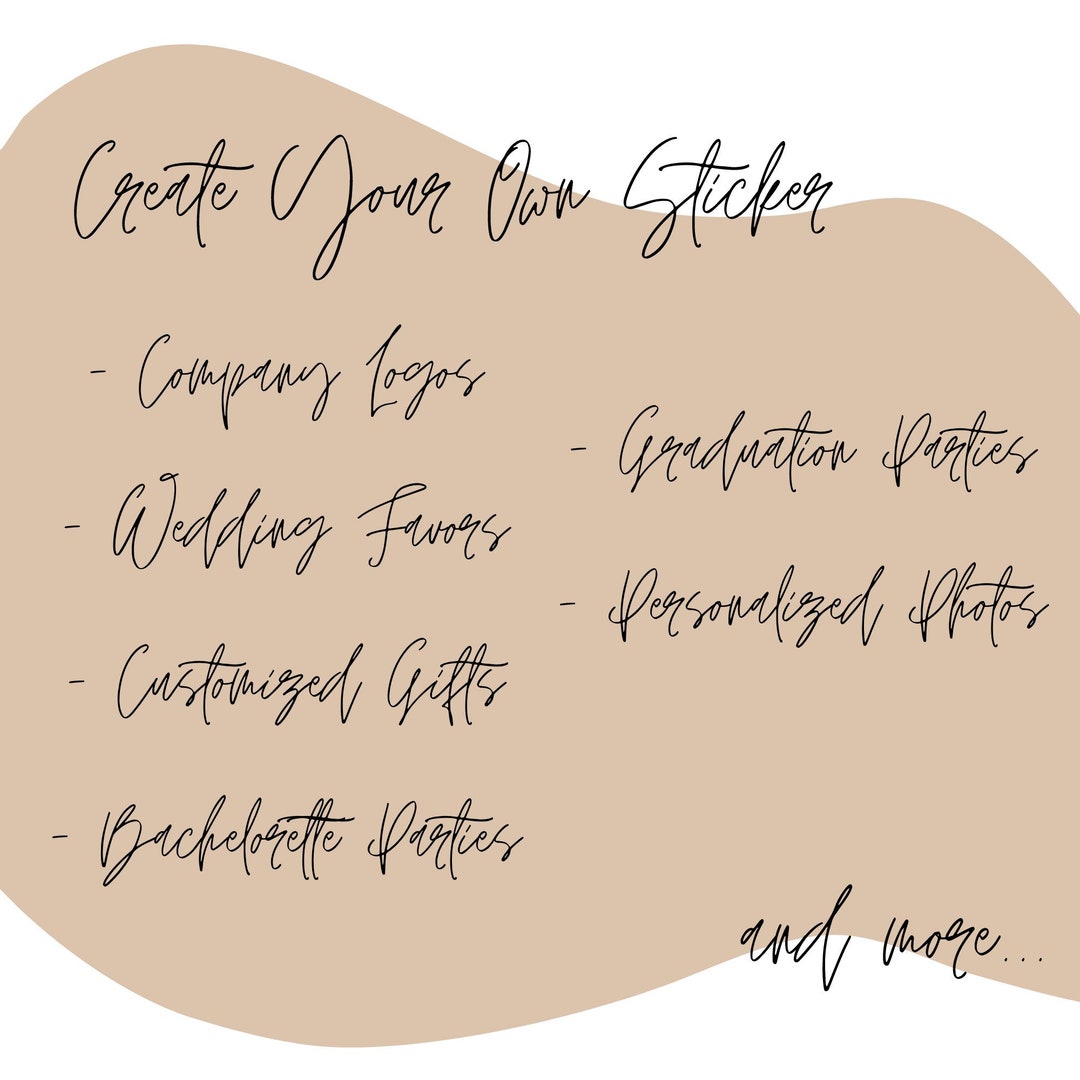 Create Your Own Sticker
- Company Logos
- Wedding Favors
- Customized Gifts
- Bachelorette Parties
- Graduation Parties
- Personalized Photos
and more...